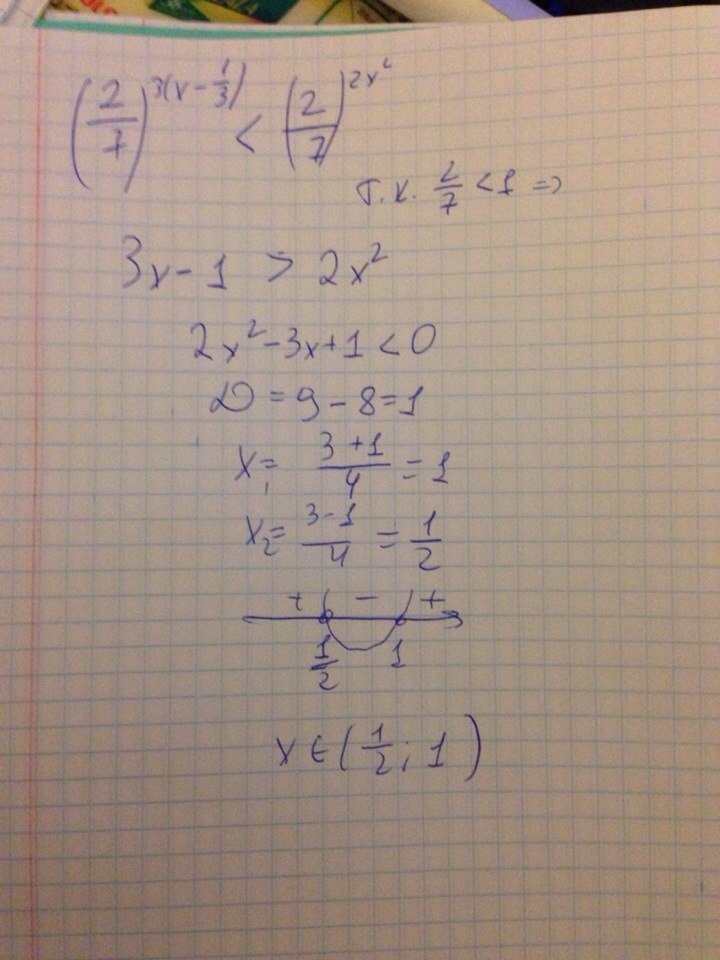 (2/7)^3(x-1/3) < (2/7)^2x²
т.к. 2/7 < 1 =>
3x-1 > 2x²
2x²-3x+1<0
D=9-8=1
x₁= 3+1/4 = 1
x₂= 3-1/4 = 1/2
+ - +
1/2 1
x∈(1/2; 1)